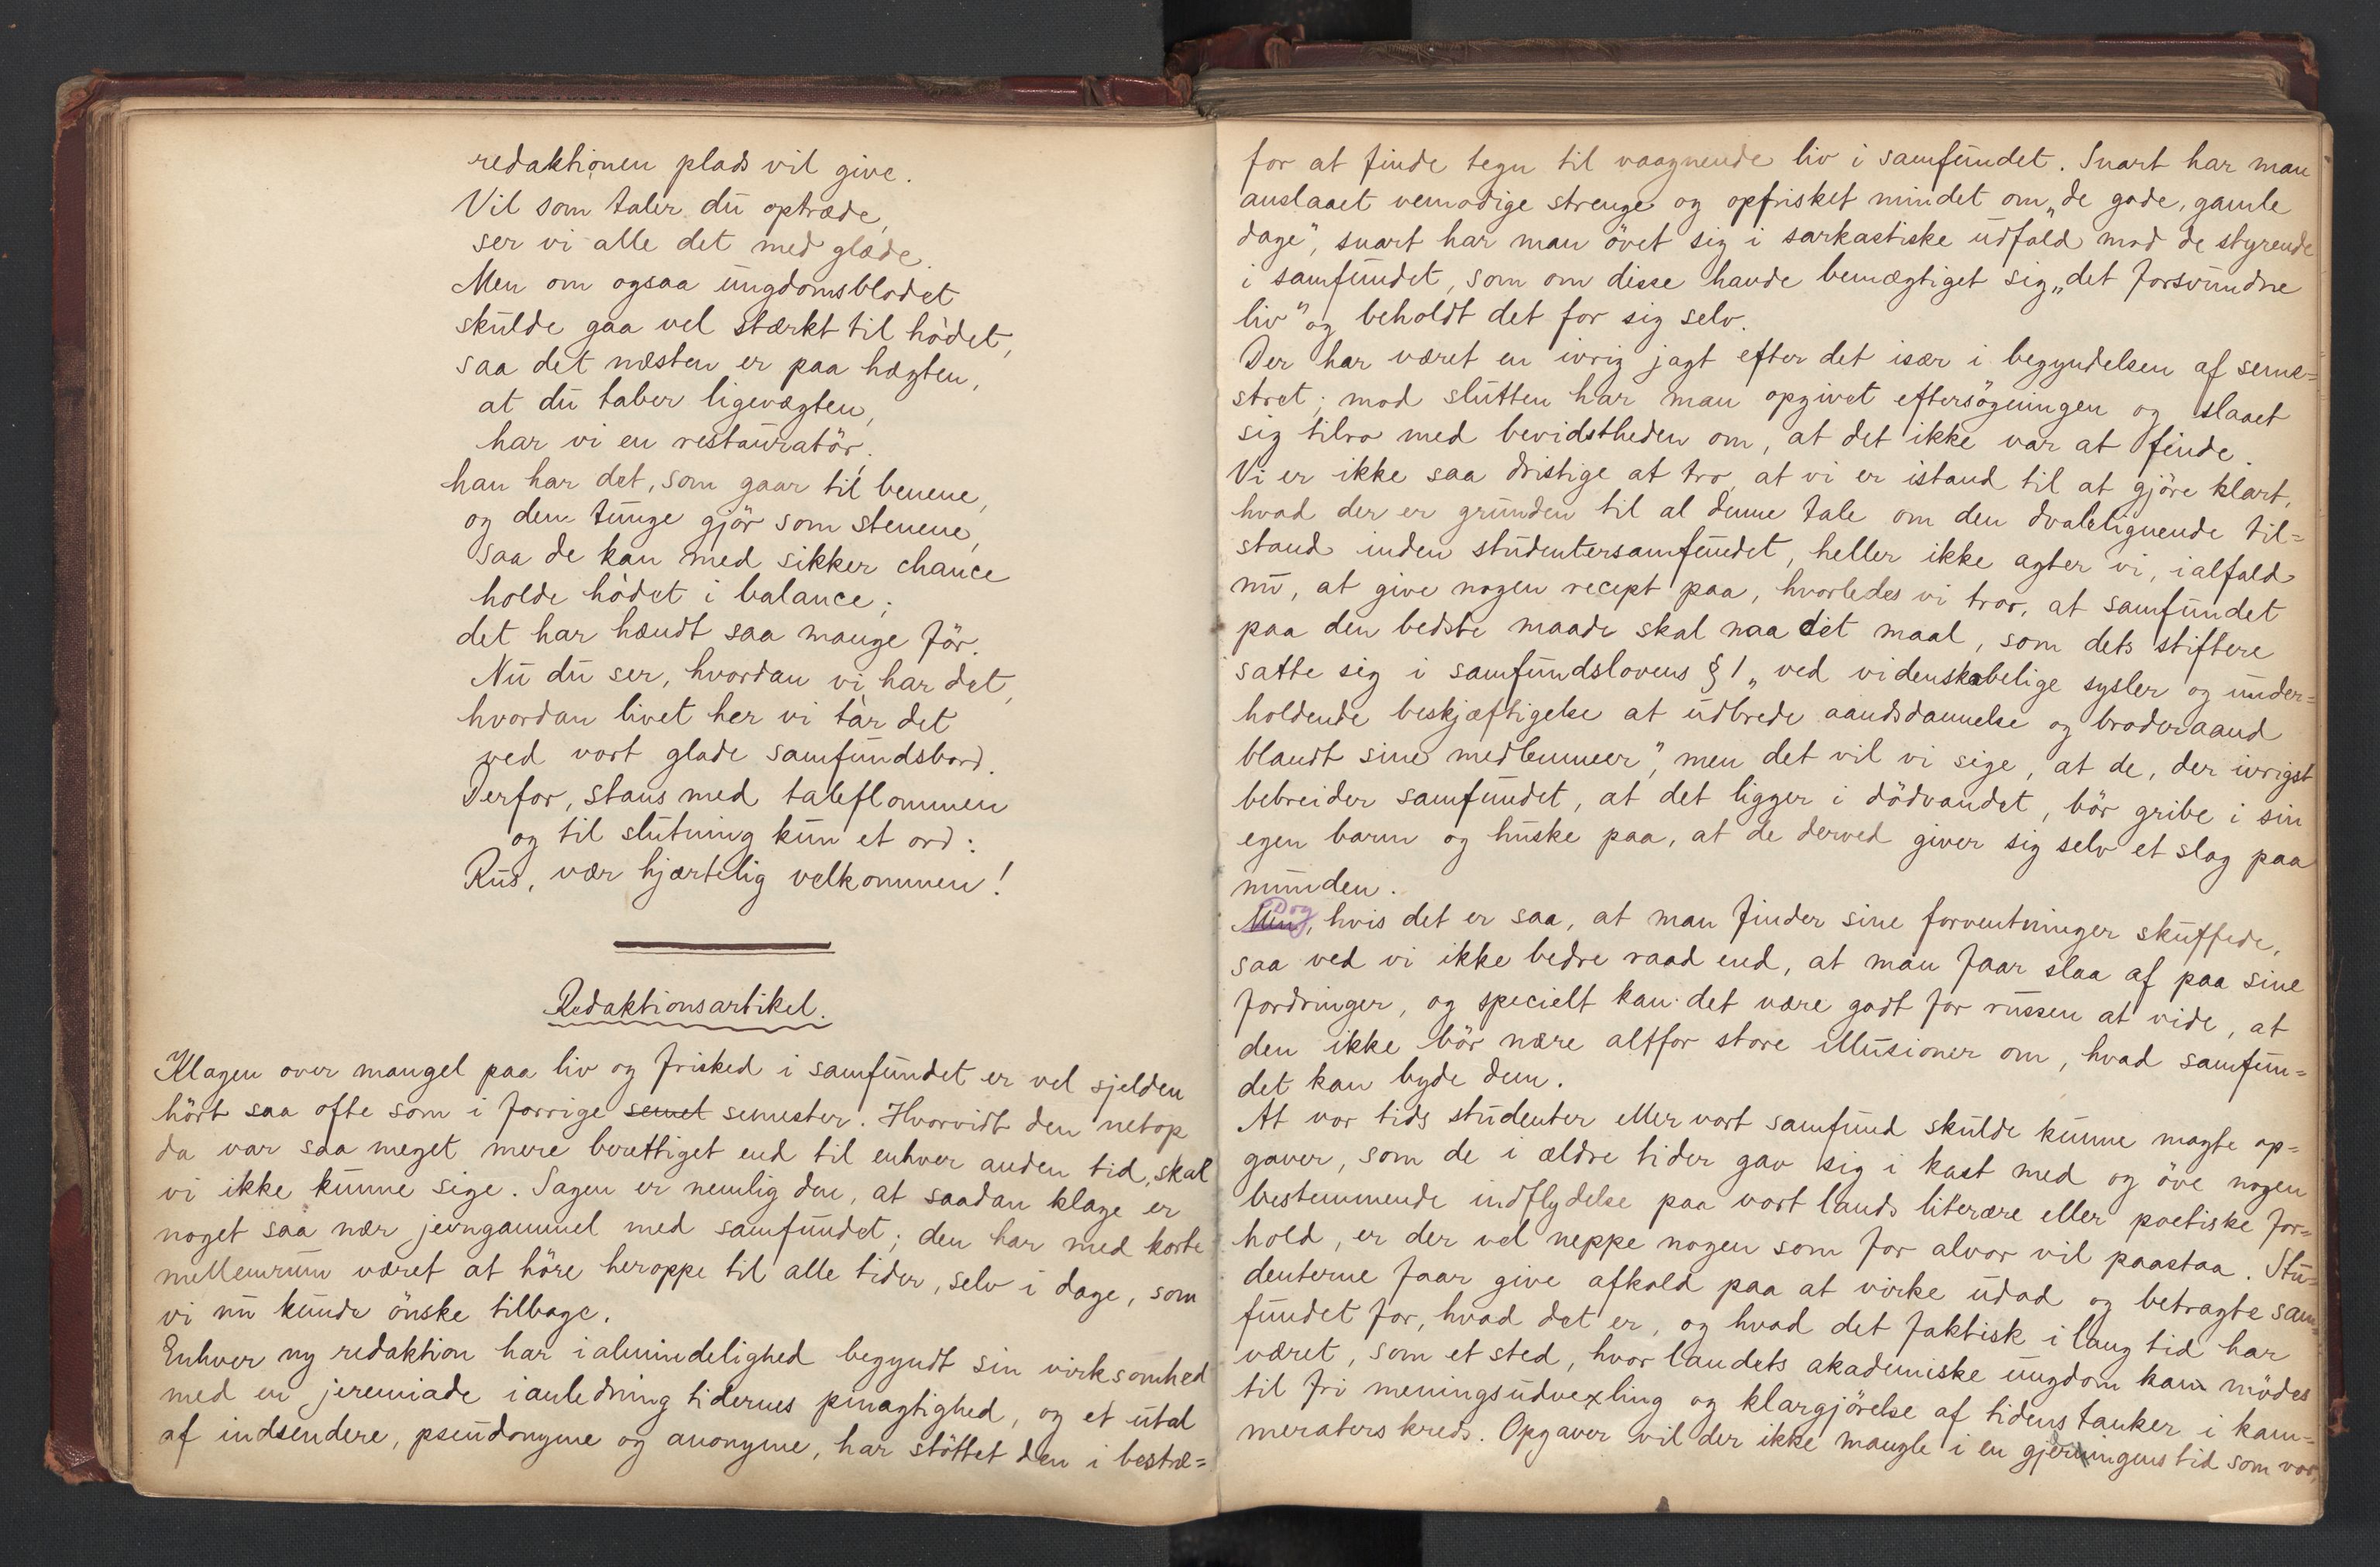 redaktionen plads vil give.
Vil som taler du optræde,
ser vi alle det med glæde.
Men om ogsaa ungdomsblodet
skulde gaa vel stærkt til hodet,
saa det næsten er paa hægten,
at du taber ligevægten,
har vi en restauratör.
han har det, som gaar til benene,
og den tunge gjör som stenene,
saa de kan med sikker chance
holde hodet i balance;
det har hændt saa mange för.
Nu du ser, hvordan vi har det,
hvordan livet her vi tar det
ved vort glade samfundsbord.
Derfor, stans med taleflommen
og til slutning kun et ord:
Rus, vær hjærtelig velkommen!
Redaktionsartikel.
Klagen over mangel paa liv og friskhed i samfundet er vel sjelden
hört saa ofte som i forrige semet semester. Hvorvidt den netop
da var saa meget mere berettiget end til enhver anden tid, skal
vi ikke kunne sige. Sagen er nemlig den, at saadan klage er
noget saa nær jevngammel med samfundet; den har med korte
mellemrum været at höre heroppe til alle tider, selv i dage, som
vi nu kunde önske tilbage.
Enhver ny redaktion har i almindelighed begyndt sin virksomhed
med en jeremiade i anledning tidernes pinagtighed, og et utal
af indsendere, pseudonyme og anonyme, har stöttet den i bestræ=
for at finde tegn til vaagnende liv i samfundet. Snart har man
anslaaet vemodige strenge og opfrisket mindet om „de gode, gamle
dage", snart har man övet sig i sarkastiske udfald mod de styrende
i samfundet, som om disse havde bemægtiget sig „det forsvundne
liv" og beholdt det for sig selv.
Der har været en ivrig jagt efter det især i begyndelsen af seme=
stret; mod slutten har man opgivet eftersögningen og slaaet
sig tilro med bevidstheden om, at det ikke var at finde.
Vi er ikke saa dristige at tro, at vi er istand til at gjöre klart,
hvad der er grunden til al denne tale om den dvalelignende til=
stand inden studentersamfundet, heller ikke agter vi, ialfald
nu, at give nogen recept paa, hvorledes vi tror, at samfundet
paa den bedste maade skal naa det maal, som dets stiftere
satte sig i samfundslovens § 1 „ved videnskabelige sysler og under=
holdende beskjæftigelse at udbrede aandsdannelse og broderaand
blandt sine medlemmer", men det vil vi sige, at de, der ivrigst
bebreider samfundet, at det ligger i dödvandet, bör gribe i sin
egen barm og huske paa, at de derved giver sig selv et slag paa
munden.
Men Dog, hvis det er saa, at man finder sine forventninger skuffede,
saa ved vi ikke bedre raad end, at man faar slaa af paa sine
fordringer, og specielt kan det være godt for russen at vide, at
den ikke bör nære altfor store illusioner om, hvad samfun=
det kan byde dem.
At vor tids studenter eller vort samfund skulde kunne magte op=
gaver, som de i ældre tider gav sig i kast med og öve nogen
bestemmende indflydelse paa vort lands literære eller poetiske for=
hold, er der vel neppe nogen som for alvor vil paastaa. Stu=
denterne faar give afkald paa at virke udad og betragte sam=
fundet for, hvad det er, og hvad det faktisk i lang tid har
været, som et sted, hvor landets akademiske ungdom kan mödes
til fri meningsudvexling og klargjörelse af tidens tanker i kam=
meraters kreds. Opgaver vil der ikke mangle i en gjerningens tid som vor,